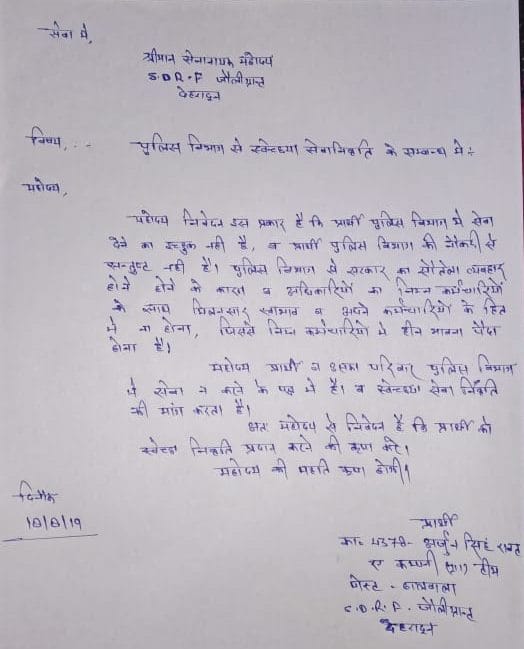 सेवा में,
श्रीमान सेनानायक महोदय
S.D.R.F जौलीग्रान्ट
देहरादून
विषय, :- पुलिस विभाग से स्वेच्छया सेवानिवृति के सम्बन्ध में :-
महोदय,
महोदय निवेदन इस प्रकार है कि प्रार्थी पुलिस विभाग में सेवा
देने का इच्छुक नही है, व प्रार्थी पुलिस विभाग की नौकरी से
सन्तुष्ट नही है। पुलिस विभाग से सरकार का सौतेला व्यवहार
होने होने के कारण व अधिकारियों का निम्न कर्मचारियों
के साथ मिलनसार स्वभाव व अपने कर्मचारियों के हित
मे ना होना, जिससे निम्न कर्मचारियो मे हीन भावना पैदा
होना है।
महोदय प्रार्थी व उसका परिवार पुलिस विभाग
मे सेवा न करने के पक्ष मे है। व स्वेच्छया सेवा निवृति
की मांग करता है।
अतः महोदय से निवेदन है कि प्रार्थी को
स्वेच्छा निवृति प्रदान करने की कृपा करे।
महोदय की महति कृपा होगी।
दिनाँक
18/8/19
प्रार्थी
का० 4378- अर्जुन सिंह रावत
ए कम्पनी टीम
पोस्ट - ढालवाला
S.D.R.F. जौलीग्रान्ट
देहरादून